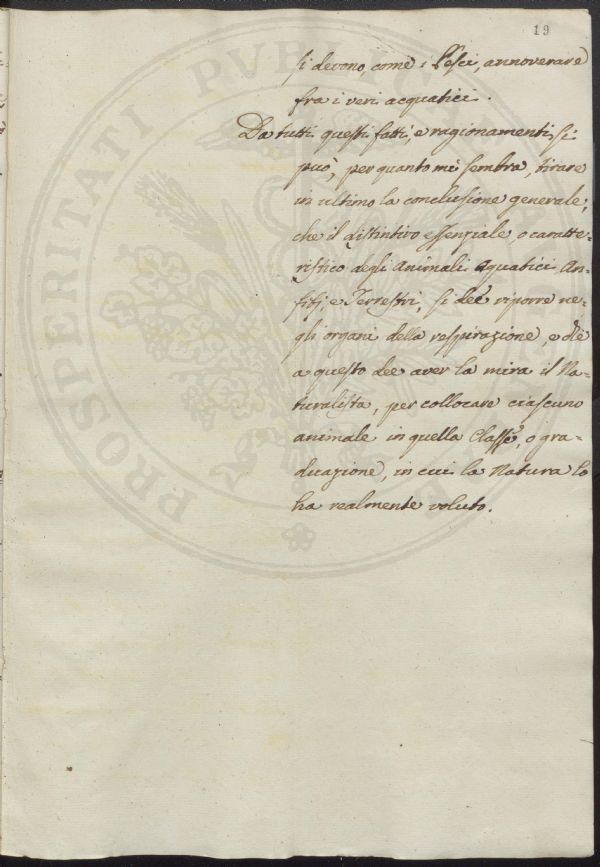 19
si devono, come i Pesci, annoverare
fra i veri acquatici.
Da tutti questi fatti, e ragionamenti si
può, per quanto mi sembra, tirare
in ultimo la conclusione generale;
che il distintivo essenziale, o caratte=
ristico degli Animali Aquatici An=
fibj, e Terrestri, si deè riporre ne=
gli organi della respirazione, e che
a questo dee aver la mira il Na=
turalista, per collocare ciascuno
animale in quella Classe, o gra=
duazione, in cui la Natura lo
ha realmente voluto.
PROSPERITATI PVBLICAE